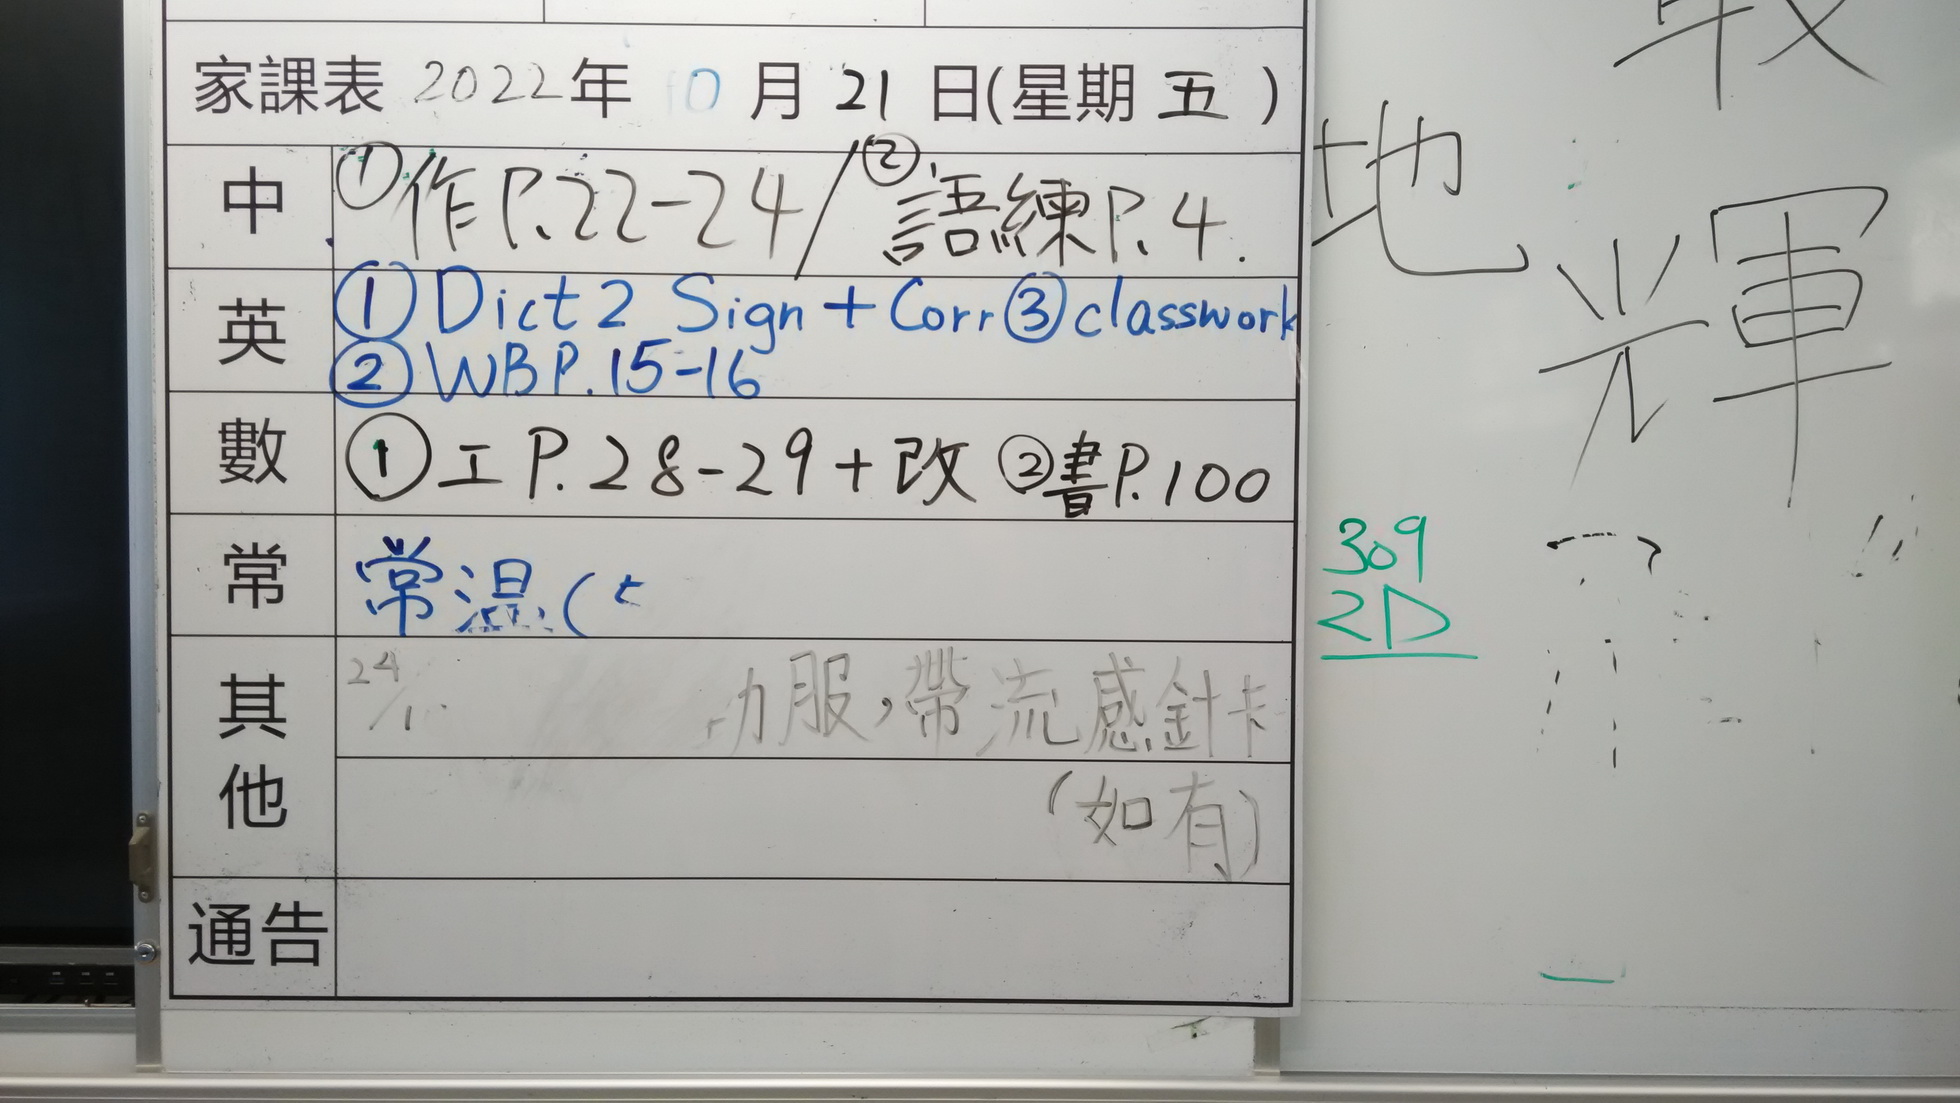 家課表 2022年 10月 21 日(星期 五 )
中 ①作P.22-24/②語練P.4.
英 ①Dict 2 Sign + Corr ③classwork
②WB P.15-16
數 ①工P.28-29+改 ②書P.100
常 常温(
其他 24/ 服,帶流感針卡
(如有)
通告
地
光輝
309
2D